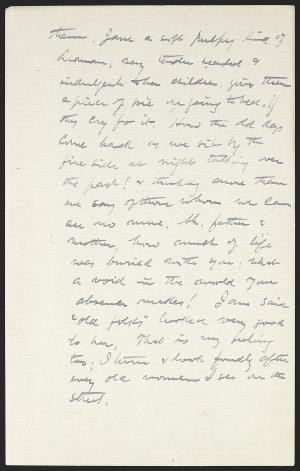 them. Jane a soft pulpy kind of
woman, very tender hearted &
indulgent to her children, gives them
a piece of pie on going to bed if
they cry for it. How the old days
come back as we sit by the
fire side at night talking over
the past! & thinking more than
we say of those whom we can
see no more. Ah, father &
mother, how much of life
was buried with you; what
a void in the world your
absence makes! Jane said
"old folks" looked very good
to her. That is my feeling
too; I turn & look fondly after
every old woman I see on the
street.